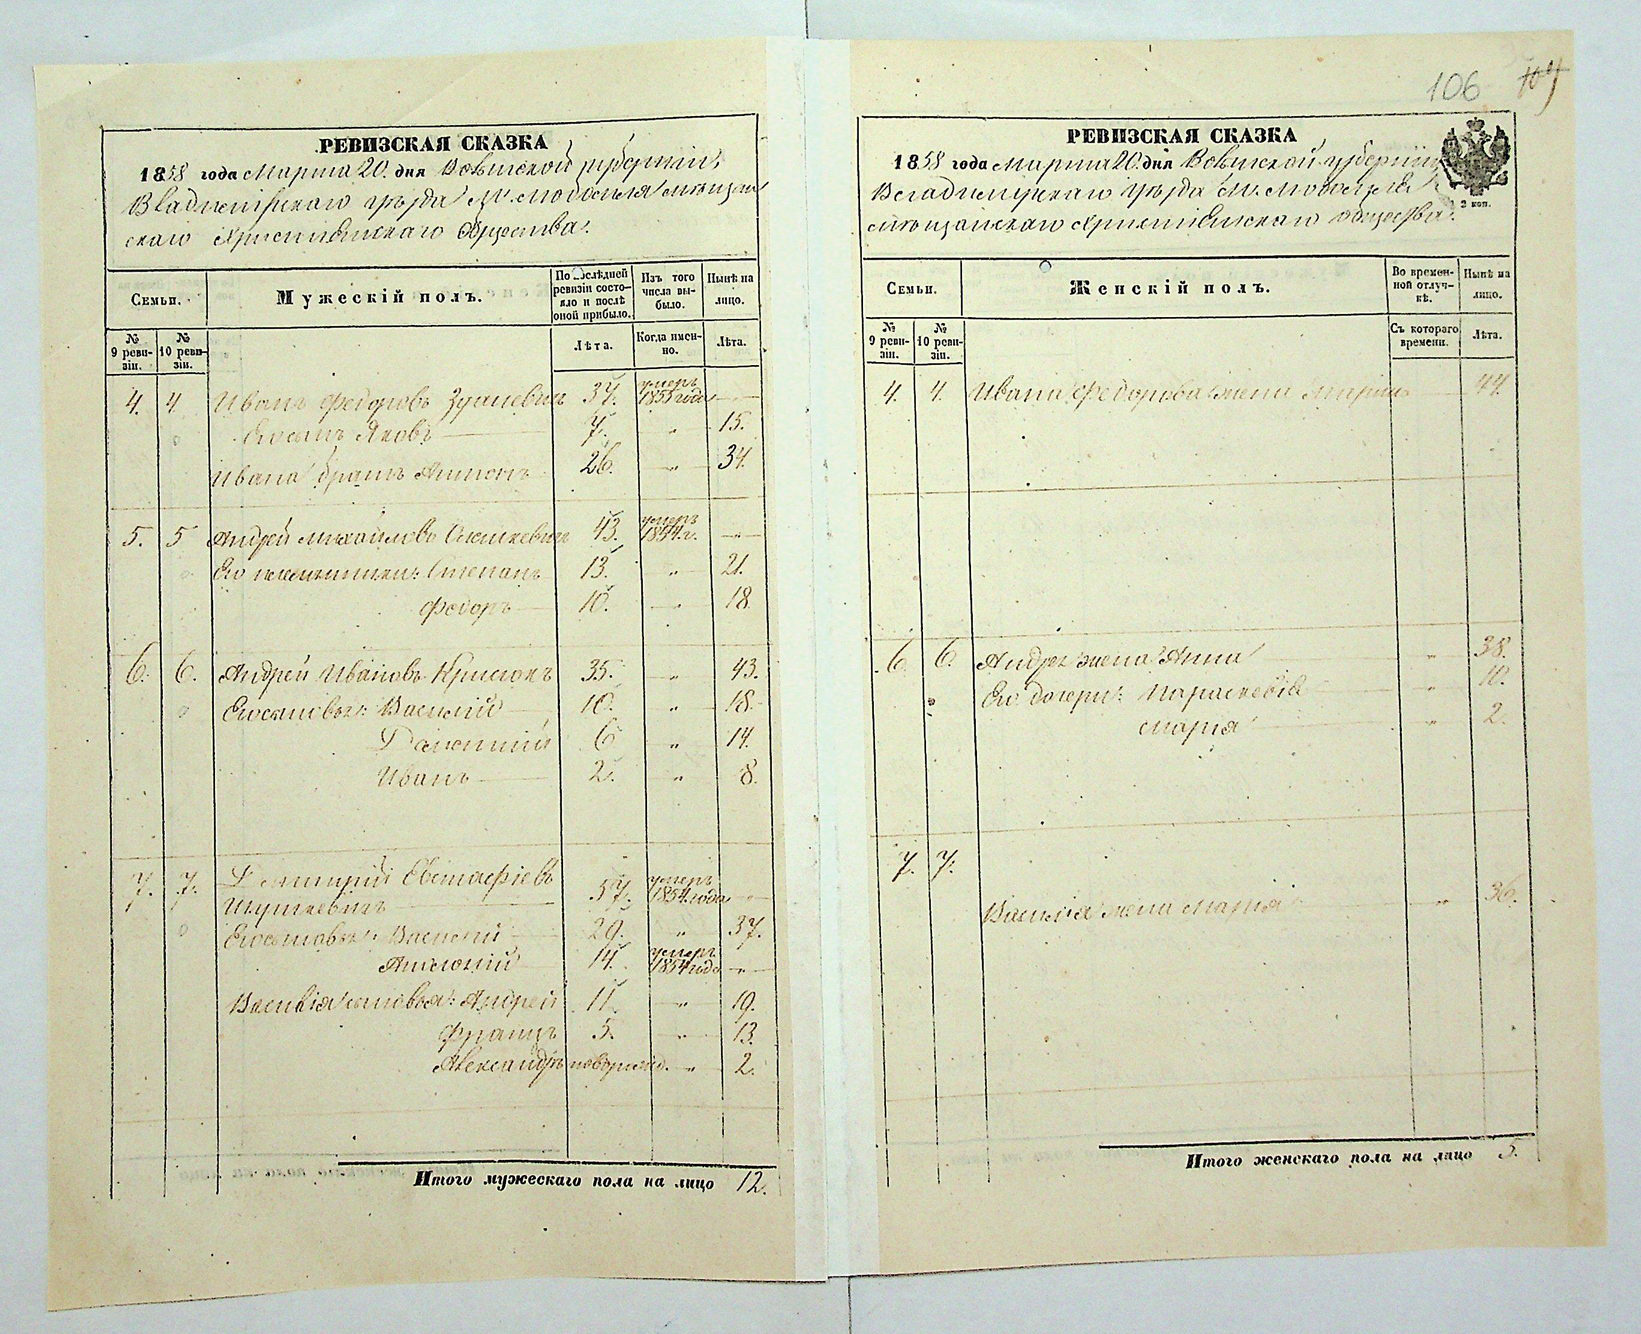 106 109
РЕВИЗСКАЯ СКАЗКА
1858 года Марта 20 дня Волынской губернiи,
Владимiрскаго уѣзда м.
скаго Христiянскаго Общества.
Семьи.
Мужескiй полъ.
По послѣдней ревизiи состояло и послѣ оной прибыло.
Изъ того числа выбыло.
Нынѣ на лицо.
№ 9 ревизiи.
№ 10 ревизiи.
Лѣта.
Когда именно.
Лѣта.
4. 4 Иванъ Федоровъ 37. умеръ 1855 года —
Его сынъ Яковъ 7. „ 15.
Ивана братъ Антонъ 26. „ 34.
5. 5 Андрей Михайловъ 43. умеръ 1854 г. —
Его племянники: Степанъ 13. „ 21.
Федоръ 10. „ 18
6. 6. Андрей Ивановъ 35. „ 43.
Его сыновья: Василiй 10. „ 18.
6 „ 14.
Иванъ 2. „ 8.
7. 7. Дмитрiй Евстафiевъ
57. умеръ 1854 года —
Его сыновья: Василiй 29. „ 37.
Антонiй 14. умеръ 1854 года „
Василiя сыновья: Андрей 11. „ 19.
Францъ 5. „ 13.
Александръ новорожд. „ 2.
Итого мужескаго пола на лицо 12.
РЕВИЗСКАЯ СКАЗКА
1858 года Марта 20 дня Волынской губернiи
Владимiрскаго уѣзда м.
мѣщанскаго Христiянскаго общества.
2 коп.
Семьи.
Женскiй полъ.
Во временной отлучкѣ.
Нынѣ на лицо.
№ 9 ревизiи.
№ 10 ревизiи.
Съ котораго времени.
Лѣта.
4. 4. Ивана Федорова жена Марiя 44.
6. 6. Андрея жена Анна „ 38.
Его дочери: Параскевiя „ 10.
Марiя „ 2.
7. 7.
Василiя жена Марiя „ 36.
Итого женскаго пола на лицо 5.